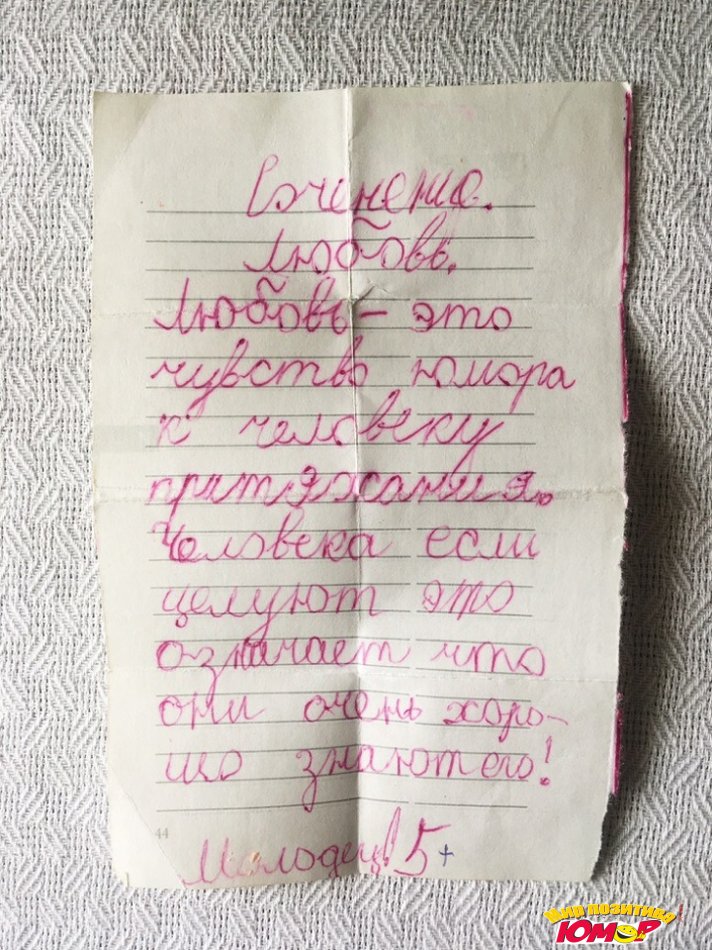 Сочинение.
Любовь.
Любовь – это
чувство юмора
к человеку
притяжания.
Человека если
целуют это
означает что
они очень хоро-
шо знают его!
44
Молодец! 5+
Мир позитива
ЮМОР